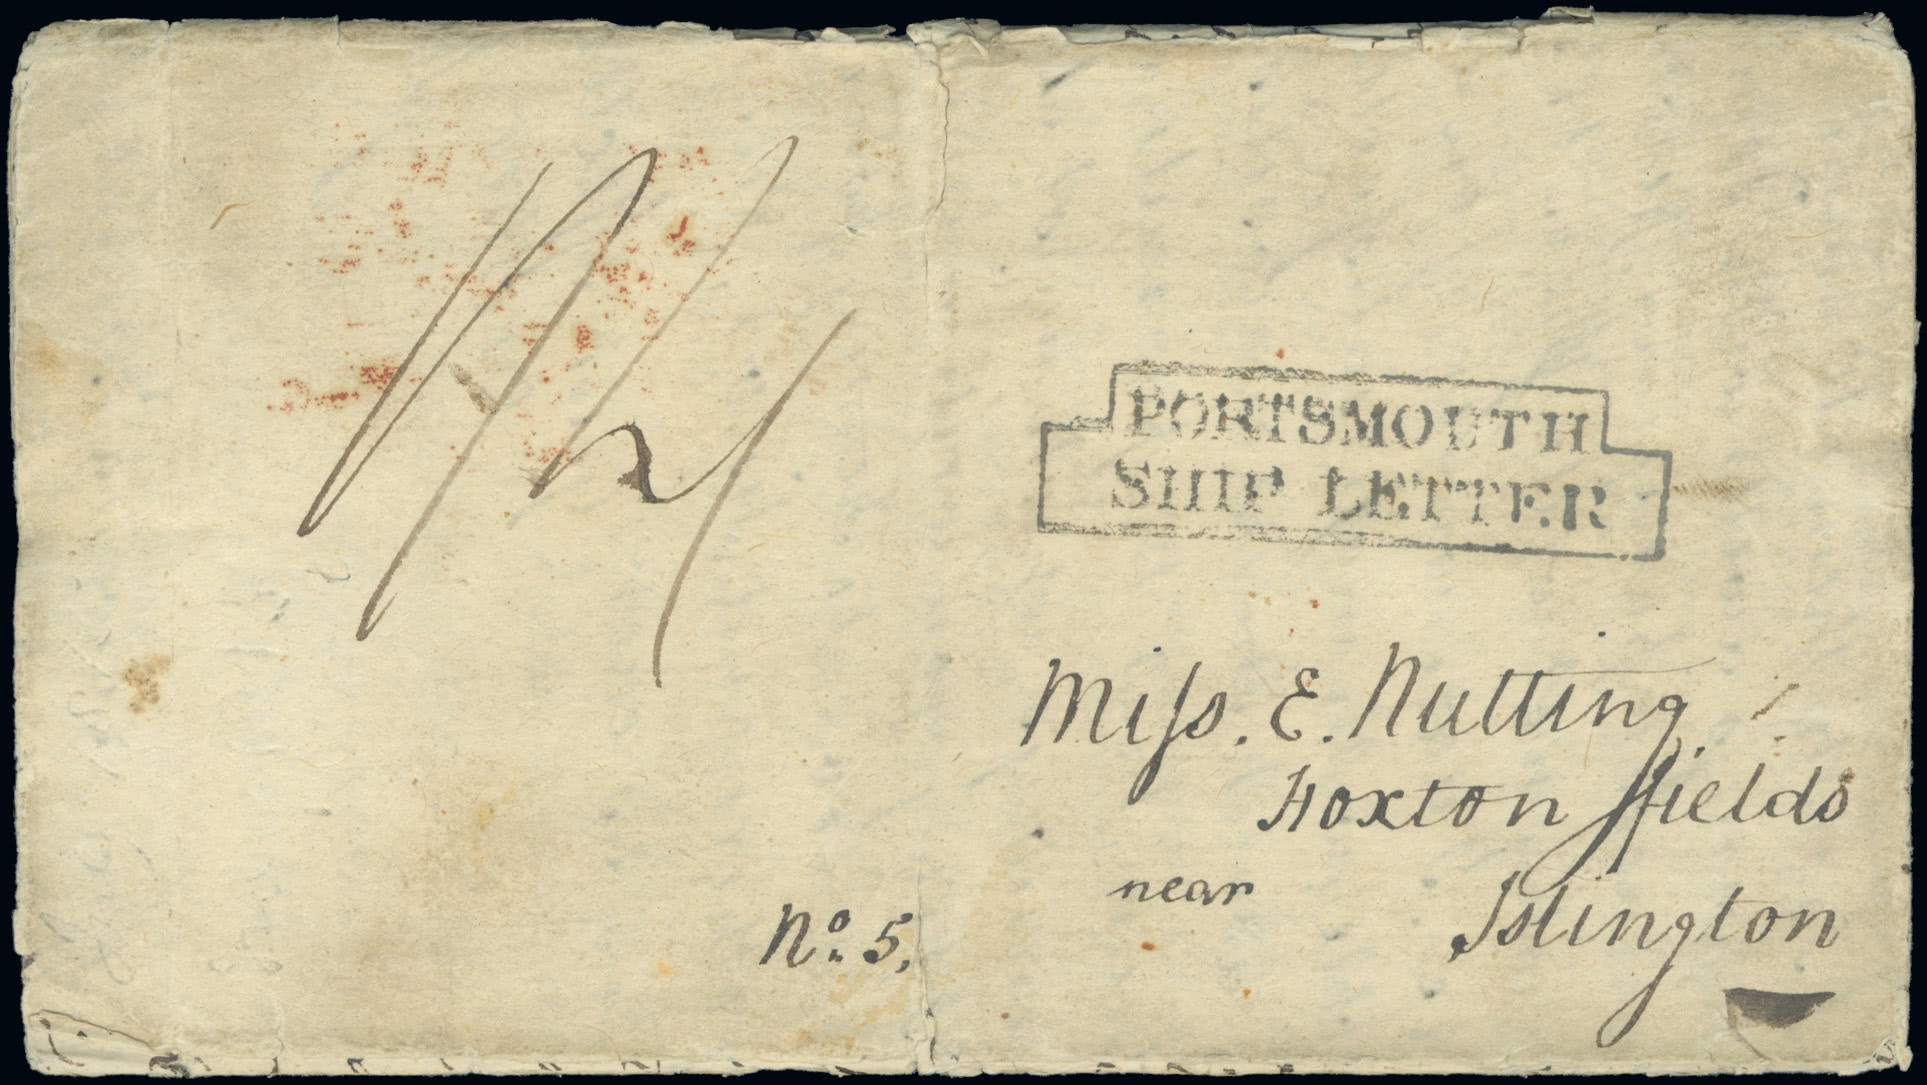 PORTSMOUTH
SHIP LETTER
Miſs. E. Nutting
Hoxton ffields
near Islington
No. 5.